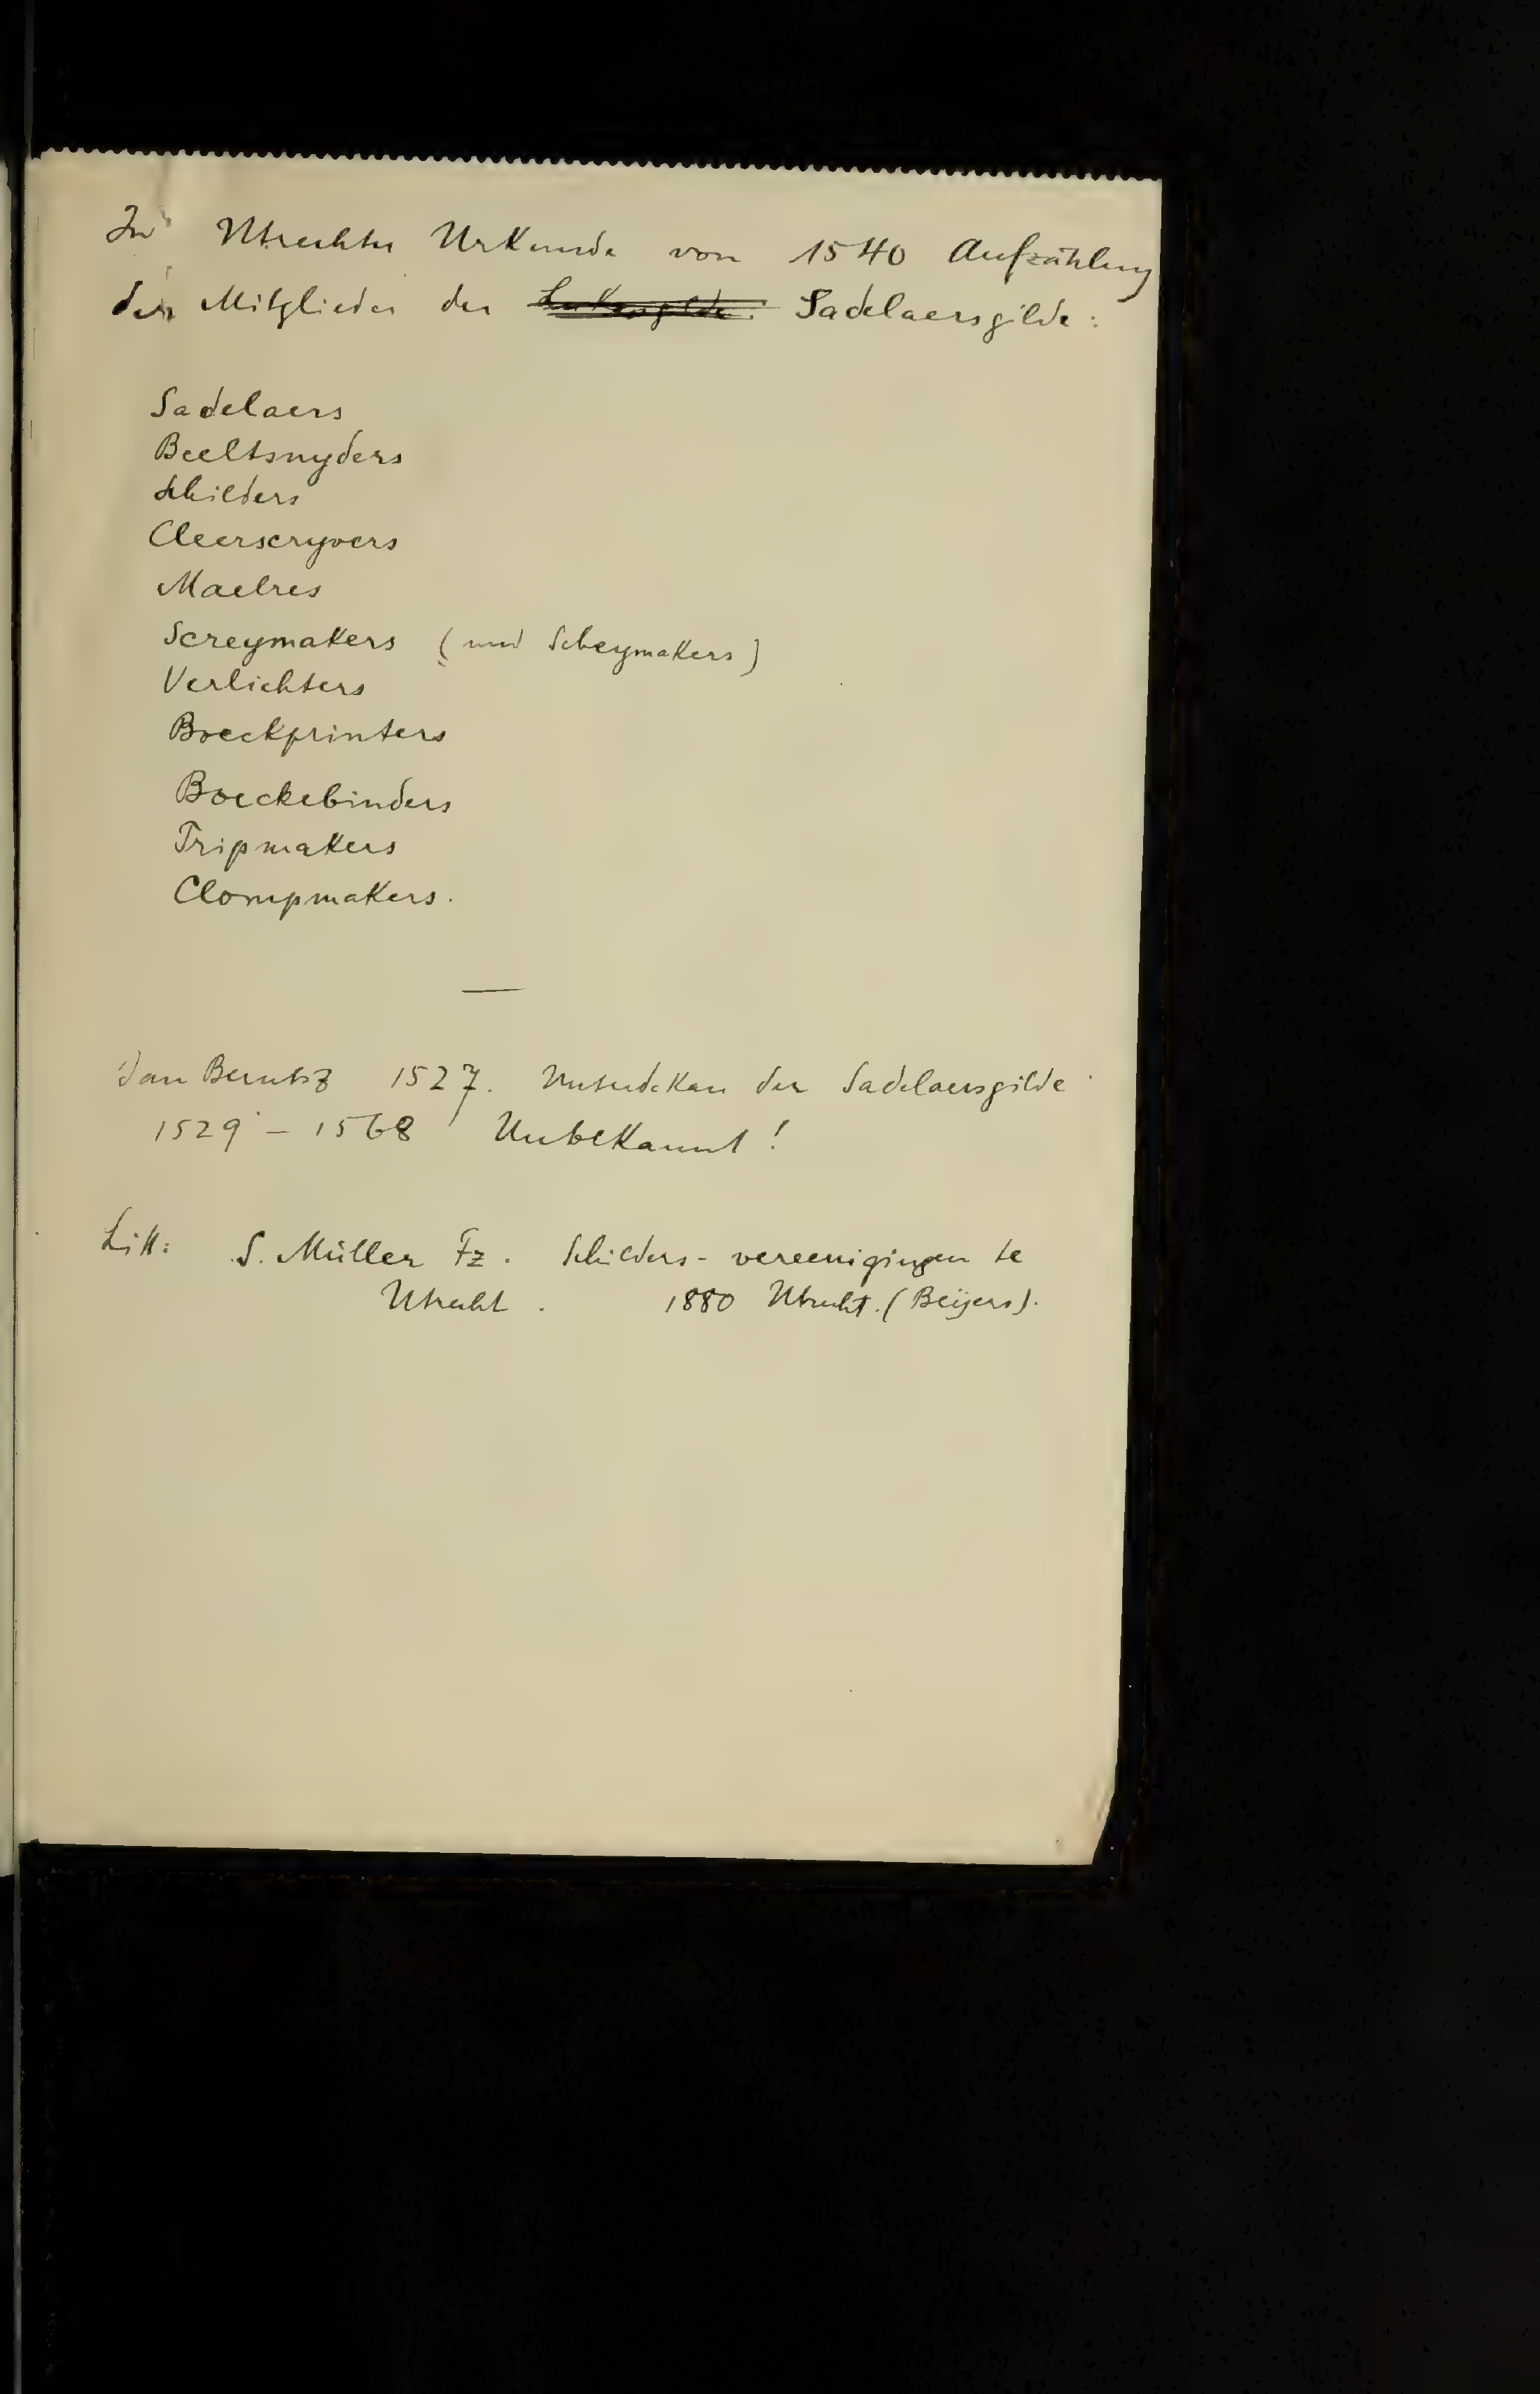 In Utrechter Urkunde von 1540 Aufzählung
der Mitglieder der Lukasgilde. Sadelaersgilde:
Sadelaers
Beeltsnyders
Schilders
Cleerscryvers
Maelres
Screymakers (und Scheymakers)
Verlichters
Boeckprinters
Boeckebinders
Tripmakers
Clompmakers.
Jan Berntsz 1527. Unterdekan der Sadelaersgilde
1529 – 1568 Unbekannt!
Litt: S. Müller Fz. Schilders-vereenigingen te
Utrecht. 1880 Utrecht. (Beijers).